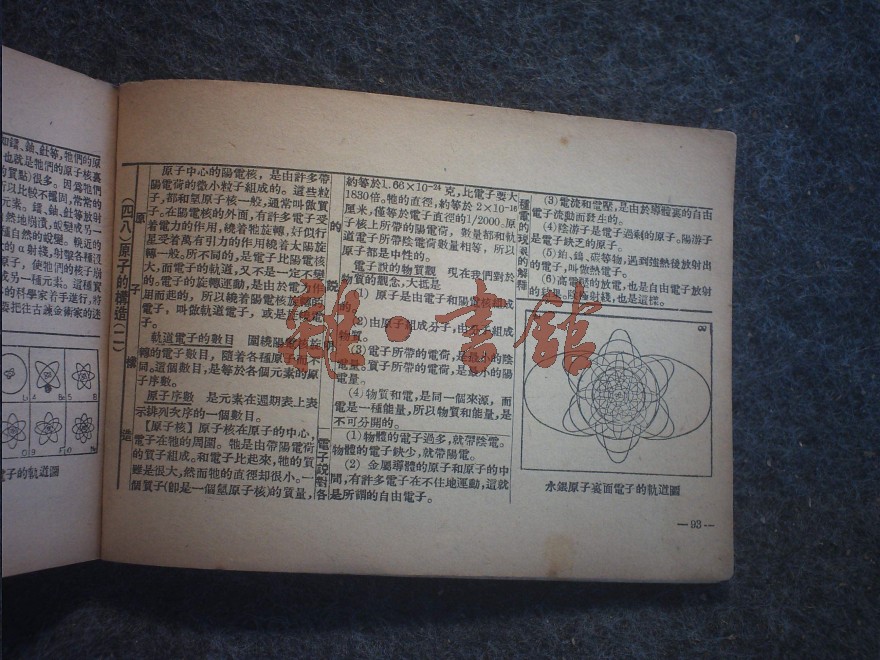 和鐳、鈾、釷等，牠們的原
也就是牠們的原子核裏
的質點）很多。因爲牠們
所以比較不穩固，常常的
元素。鐳、鈾、釷等放射
自然地崩潰，蛻變成另一
種自然的蛻變。輓近的
的α射綫，射擊各種
原子，使牠們的核子崩
成另一種元素。這種實
的科學家着手進行，將
要把往古鍊金術家的迷
電子的軌道圖
（四八）原子的構造（二）
原子構造
原子中心的陽電核，是由許多帶
陽電荷的微小粒子組成的。這些粒
子，都和氫原子核一般，通常叫做質
子。在陽電核的外面，有許多電子受
着電力的作用，繞着牠旋轉，好似行
星受着萬有引力的作用繞着太陽旋
轉一般。所不同的，是電子比陽電核
大，而電子的軌道，又不是一定不變
的。電子的旋轉運動，是由於電力作
用而起的，所以繞着陽電核旋轉的
電子，叫做軌道電子，或是旋轉電
子。
軌道電子的數目　圍繞陽電核旋
轉的電子數目，隨着各種原子而不
同。這個數目，是等於各個元素的原
子序數。
原子序數　是元素在週期表上表
示排列次序的一個數目。
【原子核】原子核在原子的中心，
電子在牠的周圍。牠是由帶陽電荷
的質子組成。和電子比起來，牠的質
量是很大，然而牠的直徑却很小。一
個質子（卽是一個氫原子核）的質量，
的說明
約等於1.66×10-24克，比電子要大
1830倍。牠的直徑，約等於2×10-16
厘米，僅等於電子直徑的1/2000。原
子核上所帶的陽電荷，數量都和軌
道電子所帶陰電荷數量相等，所以
原子都是中性的。
電子說的物質觀　現在我們對於
物質的觀念，大抵是
(1) 原子是由電子和陽電核組成
的。
(2) 由原子組成分子，由分子組成
物質。
(3) 電子所帶的電荷，是最小的陰
電量。質子所帶的電荷，是最小的陽
電量。
(4) 物質和電，是同一個來源，而
電是一種能量，所以物質和能量，是
不可分開的。
電子說對各
(1) 物體的電子過多，就帶陰電。
物體的電子缺少，就帶陽電。
(2) 金屬導體的原子和原子的中
間，有許多電子在不住地運動，這就
是所謂的自由電子。
種電的現象的解釋
(3) 電流和電壓，是由於導體裏的自由
電子流動而發生的。
(4) 陰游子是電子過剩的原子。陽游子
是電子缺乏的原子。
(5) 鉑、鎢、碳等物，遇到強熱後放射出
的電子，叫做熱電子。
(6) 高電壓的放電，也是由電子放射
的結果。陰極射綫，也是這樣。
水銀原子裏面電子的軌道圖
—93—
雜·書館